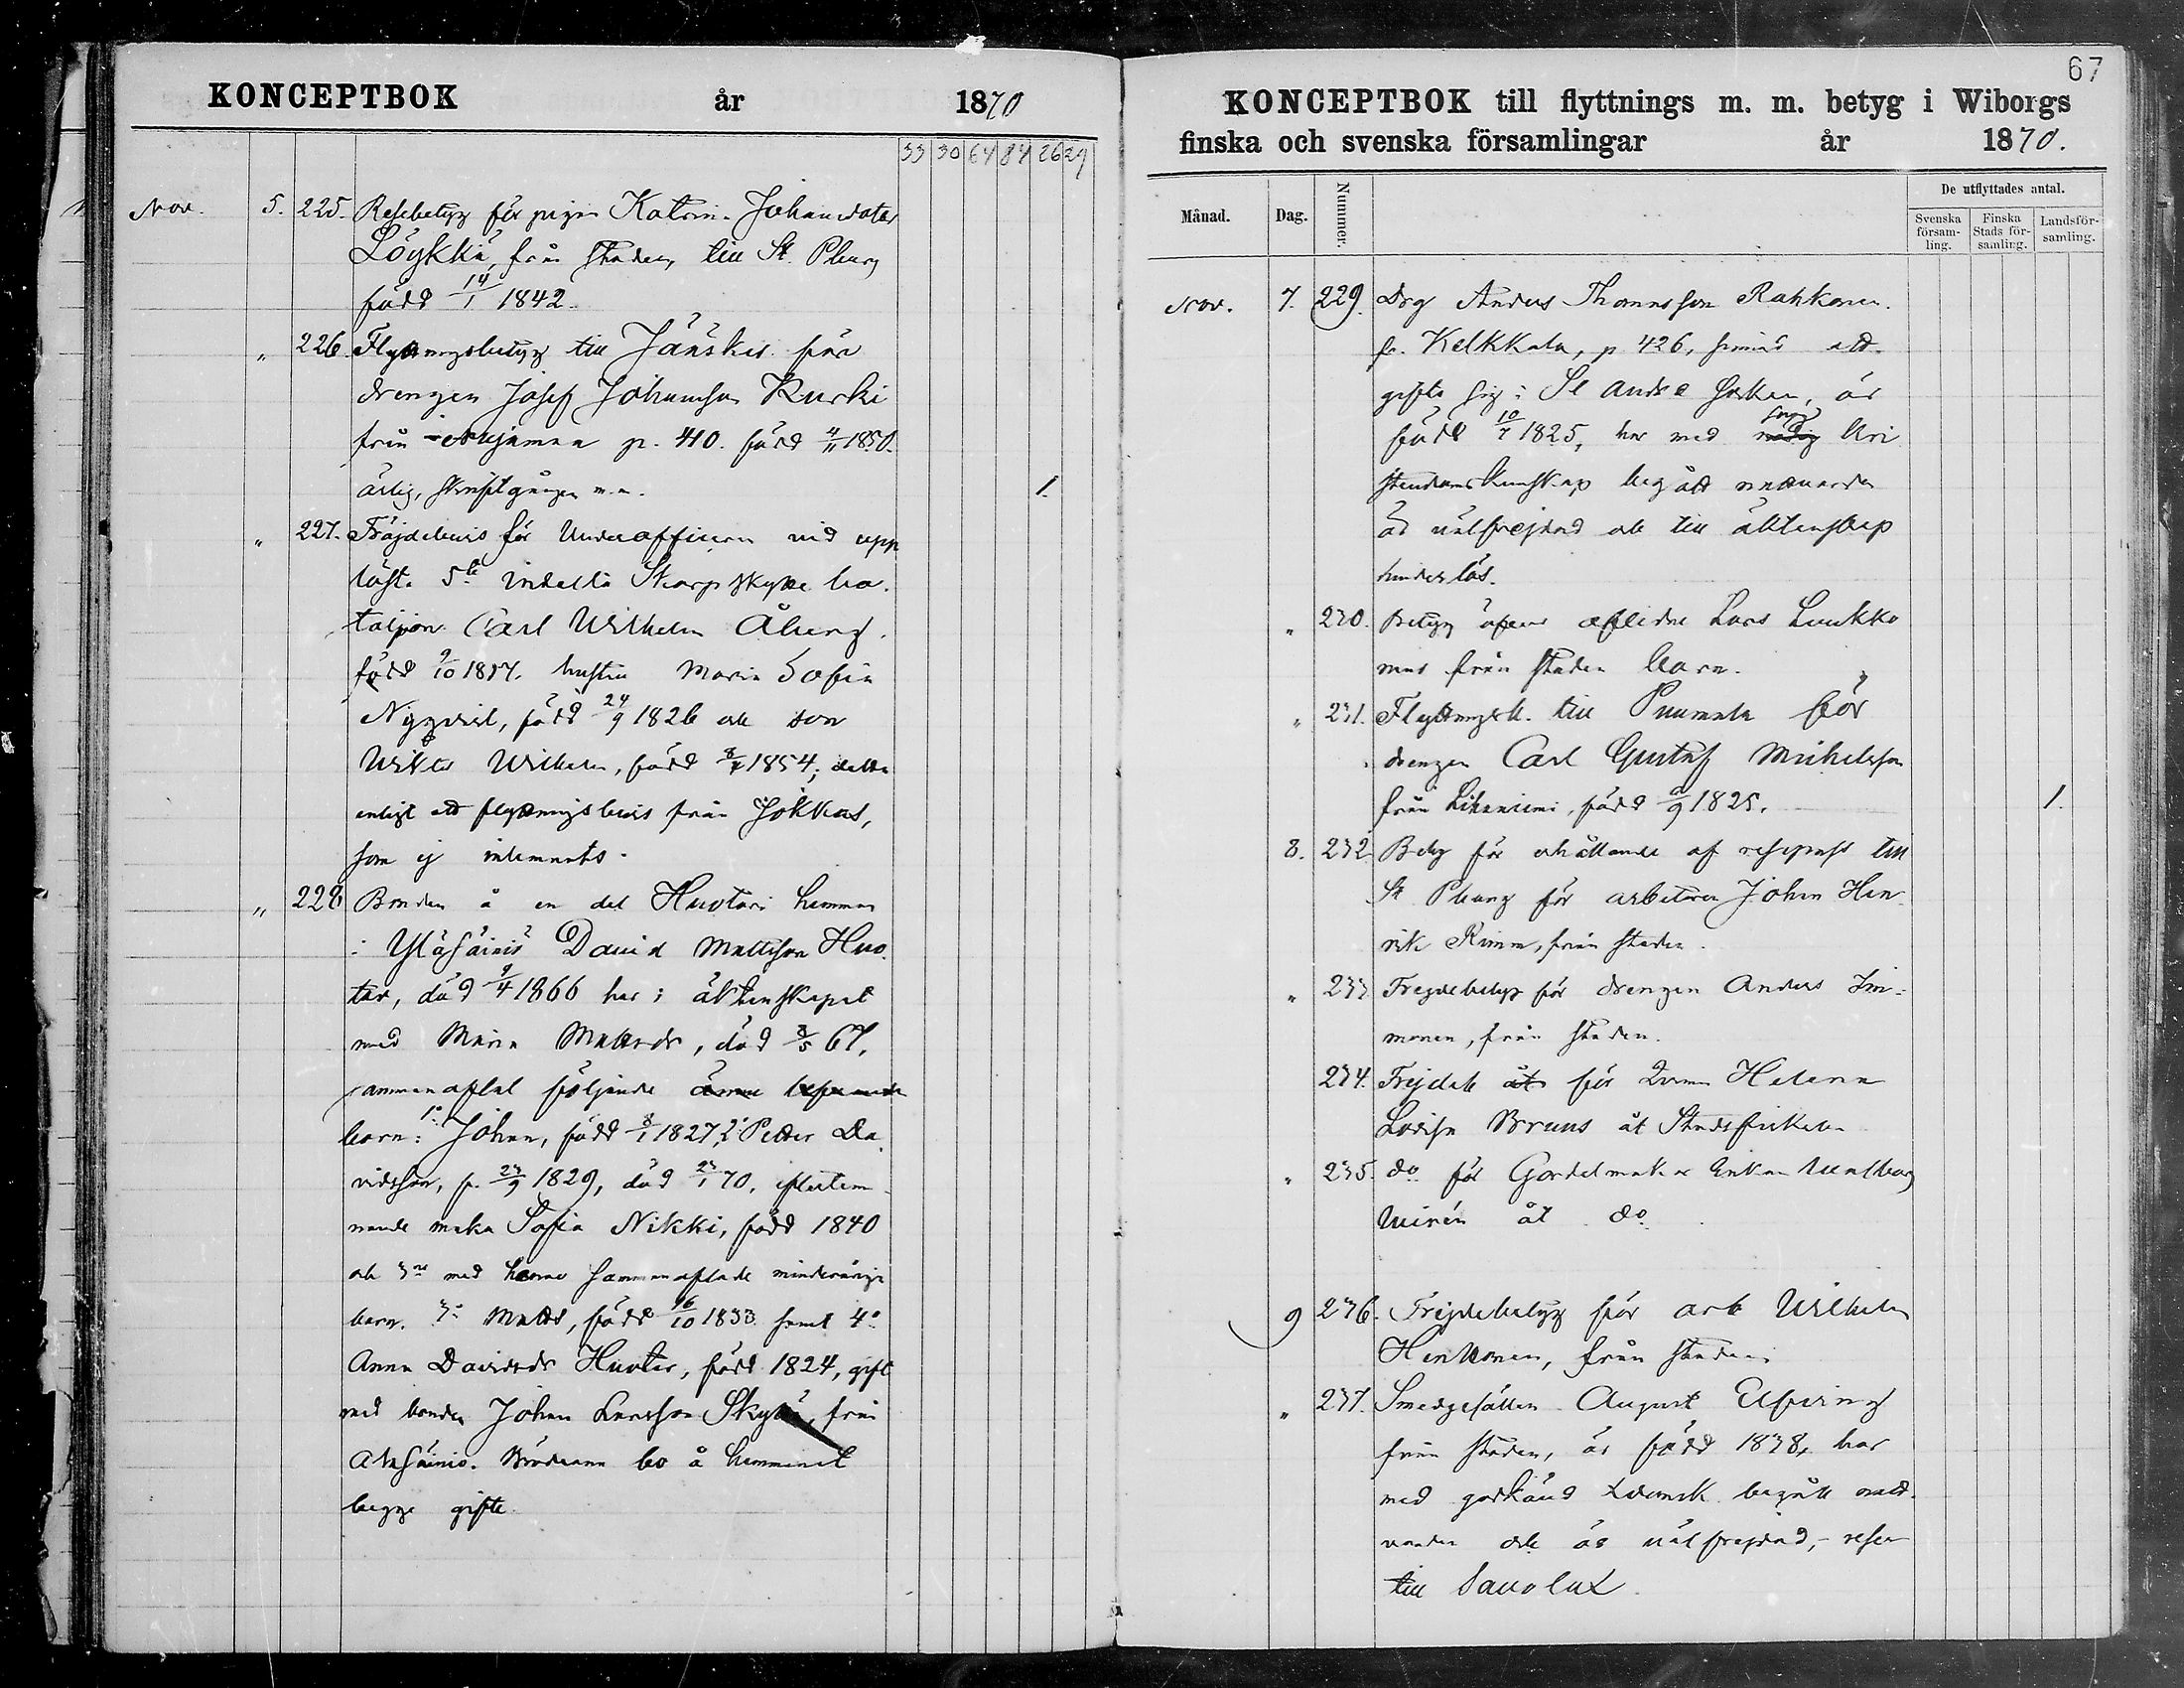 KONCEPTBOK år 1870
33 30 64 84 26 29
Nov. 5. 225. Resebetyg för pigan Katrin. Johansdoter
Löykkä, från staden, till St. Pburg
född 14/1 1842.
„ 226. Flyttningsbetyg till Jääskis för
drengen Josef Johansson Kurki
från Nuijamaa p. 410. född 4/11 1850.
ärlig, skriftgången m.m. 1.
„ 227. Fräjdebevis för Underofficern vid upp
löste 5te indelta Skarpskytte ba-
taljon Carl Wilhelm Åberg,
född 9/10 1817. hustru Maria Sofia
Nyqvist, född 24/9 1826 och son
Wiktor Wilhelm, född 1854; detta
enligt ett flyttningsbevis från Jokkas,
som ej inlemnats.
„ 228 Bonden å en del Huotari hemman
i Yläsäiniö David Mattsson Huo
tar, död 9/4 1866 har i äktenskapet
med Maria Mattsdr, död 3/5 67,
sammanaflat följande
barn: 1o Johan, född 8/1 1827, 2o Petter Da
vidsson, f. 23/9 1829, död 23/1 70, efterlem
nande maka Sofia Nikki, född 1840
och 3ne med henne sammanaflade minderåriga
barn. 3o Matts, född 16/10 1833 samt 4o
Anna Davidsdr Huotar, född 1824, gift
med bonden Johan Larsson Skyttä, från
Alasäiniö. Bröderna bo å hemmanet
begge gifte.
67
KONCEPTBOK till flyttnings m. m. betyg i Wiborgs
finska och svenska församlingar år 1870.
Månad. Dag. Nummer. De utflyttades antal.
Svenska församling. Finska Stads församling. Landsförsamling.
Nov. 7. 229. Drg Anders Thomasson Rahkonen
fr. Kelkkala, p 426, ämnad att
gifta sig i St Andræ socken, är
född 10/7 1825, har med nödig Kri
stendomskunskap begått nattvarden
är välfrejdad och till äktenskap
hinderlös.
„ 230. Betyg öfver aflidne Lars Luukko
nens från staden barn.
„ 231. Flyttningsb. till Puumala för
drengen Carl Gustaf Mikelsson
från Lihaniemi, född 1825. 1.
8. 232. Betyg för erhållande af resepass till
St Pburg för arbetaren Johan Hen
rik Rimm, från staden.
„ 233 Frejdebetyg för drengen Anders Im-
monen, från staden.
234. Frejdeb åt för Helena
Lovisa Bruns åt Stadsfiskalen
„ 235. do för Gördelmakare Enkan
åt do.
9 236. Frejdebetyg för arb Wilhelm
Henttonen, från staden.
„ 237. Smedgesällen August Elfving
från staden, är född 1838, har
med godkänd kdomsk. begått natt-
varden och är välfrejdad, - reser
till Savolax.